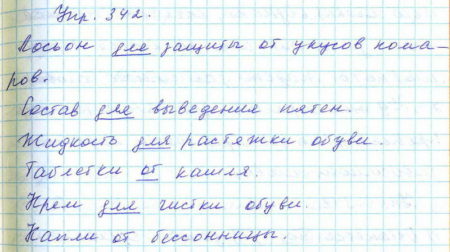 Упр. 342.
Лосьон для защиты от укусов кома-
ров.
Состав для выведения пятен.
Жидкость для растяжки обуви.
Таблетки от кашля.
Крем для чистки обуви.
Капли от бессонницы.